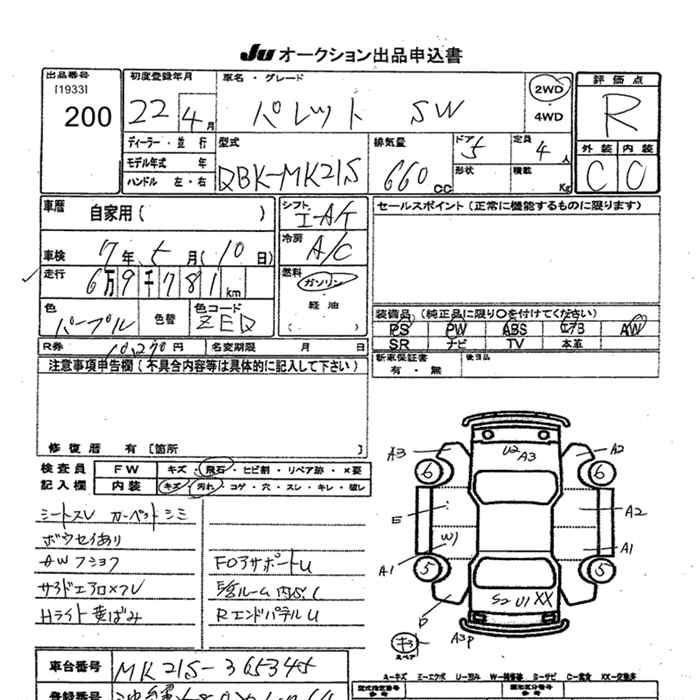 Ju オークション出品申込書
出品番号 初度登録年月 車名・グレード 評価点
[1933] 200 22 4月 パレット SW 2WD ・ 4WD R
ディーラー・並行 型式 排気量 ドア 定員 外装 内装
モデル年式 年 DBK-MK21S 660cc 5 4人 C C
ハンドル 左・右 形状 積載 Kg
車歴 自家用( ) シフト I-A/T セールスポイント(正常に機能するものに限ります)
車検 7年 5月(10日) 冷房 A/C
走行 6万9千781km 燃料 ガソリン
軽油
色 パープル 色替 色コード ZEQ ( ) 装備品(純正品に限り○を付けてください)
PS PW ABS エアB AW
R券 10,270円 名変期限 月 日 SR ナビ TV 本革
注意事項申告欄(不具合内容等は具体的に記入して下さい) 新車保証書 後日品
有・無
修復歴 有[箇所 ]
検査員 FW キズ・飛石・ヒビ割・リペア跡・×要
記入欄 内装 キズ・汚れ・コゲ・穴・スレ・キレ・破レ
シートスレ カーペットシミ
ボウセイあり
AWフショク FロアサポートU
サイドエアロ×フレ
Hライト黄ばみ RエンドパネルU
U2 A3
A3 A2
6 6
E A2
W1 A1
A1
5 5
S2 U1 XX
キズ A3P
スペア
A-キズ E-エクボ U-凹み W-補修跡 S-サビ C-腐食 XX-交換済
車台番号 MK21S-365345
登録番号